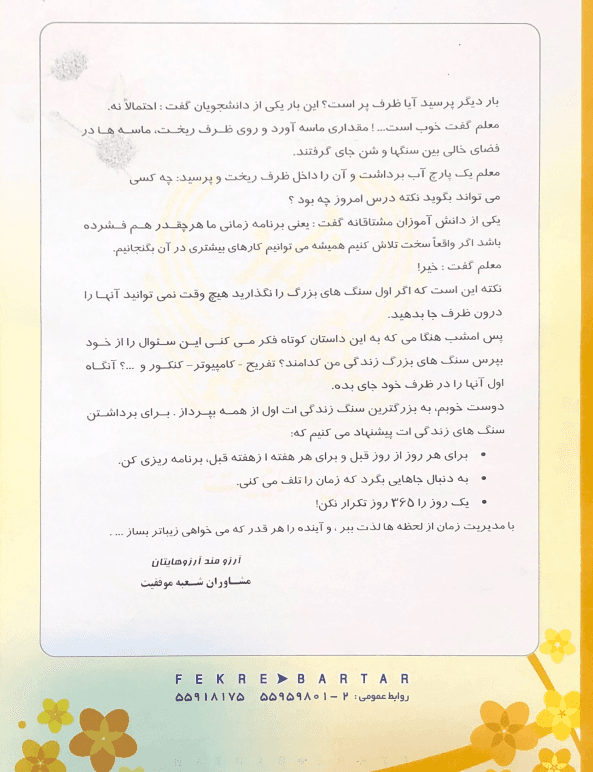 بار دیگر پرسید آیا ظرف پر است؟ این بار یکی از دانشجویان گفت : احتمالاً نه.
معلم گفت خوب است...! مقداری ماسه آورد و روی ظرف ریخت، ماسه ها در
فضای خالی بین سنگها و شن جای گرفتند.
معلم یک پارچ آب برداشت و آن را داخل ظرف ریخت و پرسید: چه کسی
می تواند بگوید نکته درس امروز چه بود ؟
یکی از دانش آموزان مشتاقانه گفت : یعنی برنامه زمانی ما هرچقدر هم فشرده
باشد اگر واقعاً سخت تلاش کنیم همیشه می توانیم کارهای بیشتری در آن بگنجانیم.
معلم گفت : خیر!
نکته این است که اگر اول سنگ های بزرگ را نگذارید هیچ وقت نمی توانید آنها را
درون ظرف جا بدهید.
پس امشب هنگا می که به این داستان کوتاه فکر می کنی این سئوال را از خود
بپرس سنگ های بزرگ زندگی من کدامند؟ تفریح - کامپیوتر- کنکور و ...؟ آنگاه
اول آنها را در ظرف خود جای بده.
دوست خوبم، به بزرگترین سنگ زندگی ات اول از همه بپرداز . برای برداشتن
سنگ های زندگی ات پیشنهاد می کنیم که:
• برای هر روز از روز قبل و برای هر هفته ا زهفته قبل، برنامه ریزی کن.
• به دنبال جاهایی بگرد که زمان را تلف می کنی.
• یک روز را ۳۶۵ روز تکرار نکن!
با مدیریت زمان از لحظه ها لذت ببر ، و آینده را هر قدر که می خواهی زیباتر بساز ... .
آرزو مند آرزوهایتان
مشاوران شعبه موفقیت
FEKRE➤BARTAR
روابط عمومی : ۲ -۵۵۹۵۹۸۰۱ ۵۵۹۱۸۱۷۵